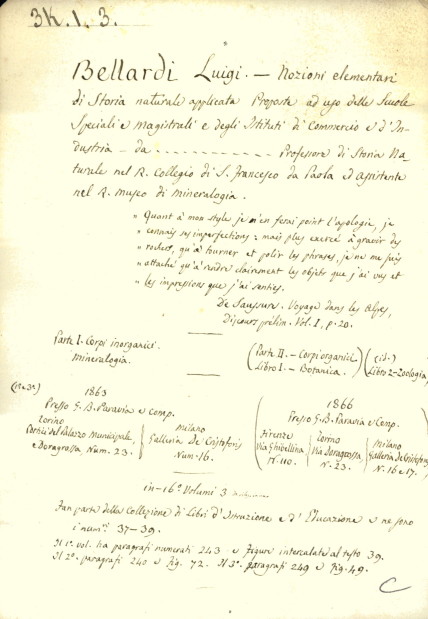 3K. 1. 3.
Bellardi Luigi. — Nozioni elementari
di Storia naturale applicata Proposte ad uso delle Scuole
Speciali e Magistrali e degli Istituti di Commercio e d'In-
dustria — da . . . . . . . . . . . Professore di Storia Na-
turale nel R. Collegio di S. Francesco da Paola ed assistente
nel R. Museo di mineralogia.
" Quant à mon style je n'en ferai point l'apologie, je
" connais ses imperfections: mais plus exercé à gravir des
" rochers, qu'à tourner et polir les phrases, je ne me suis
" attaché qu'à rendre clairement les objets que j'ai vus et
" les impressions que j'ai senties.
De Saussure. Voyage dans les Alpes,
Discours prélim. Vol. I, p. 20.
Parte I. Corpi inorganici.
Mineralogia.
(Parte II. — Corpi organici) (id.)
(Libro I. — Botanica.) Libro 2 - Zoologia
1863
Presso G. B. Paravia e Comp.
Torino
Portici del Palazzo Municipale,
e Doragrossa Num. 23.
Milano
Galleria De Cristoforis
Num. 16.
1866
Presso G. B. Paravia e Comp.
Firenze
Via Ghibellina
N. 110.
Torino
Via Doragrossa
N. 23.
Milano
Galleria De Cristoforis
N. 16 e 17.
in-16° Volumi 3
Fan parte della Collezione di Libri d'Istruzione e d'Educazione e ne sono
i num.i 37-39.
Il 1° vol. ha paragrafi numerati 243 e figure intercalate al testo 39.
Il 2°. paragrafi 240 e fig. 72. Il 3°. paragrafi 249 e fig. 49.
C